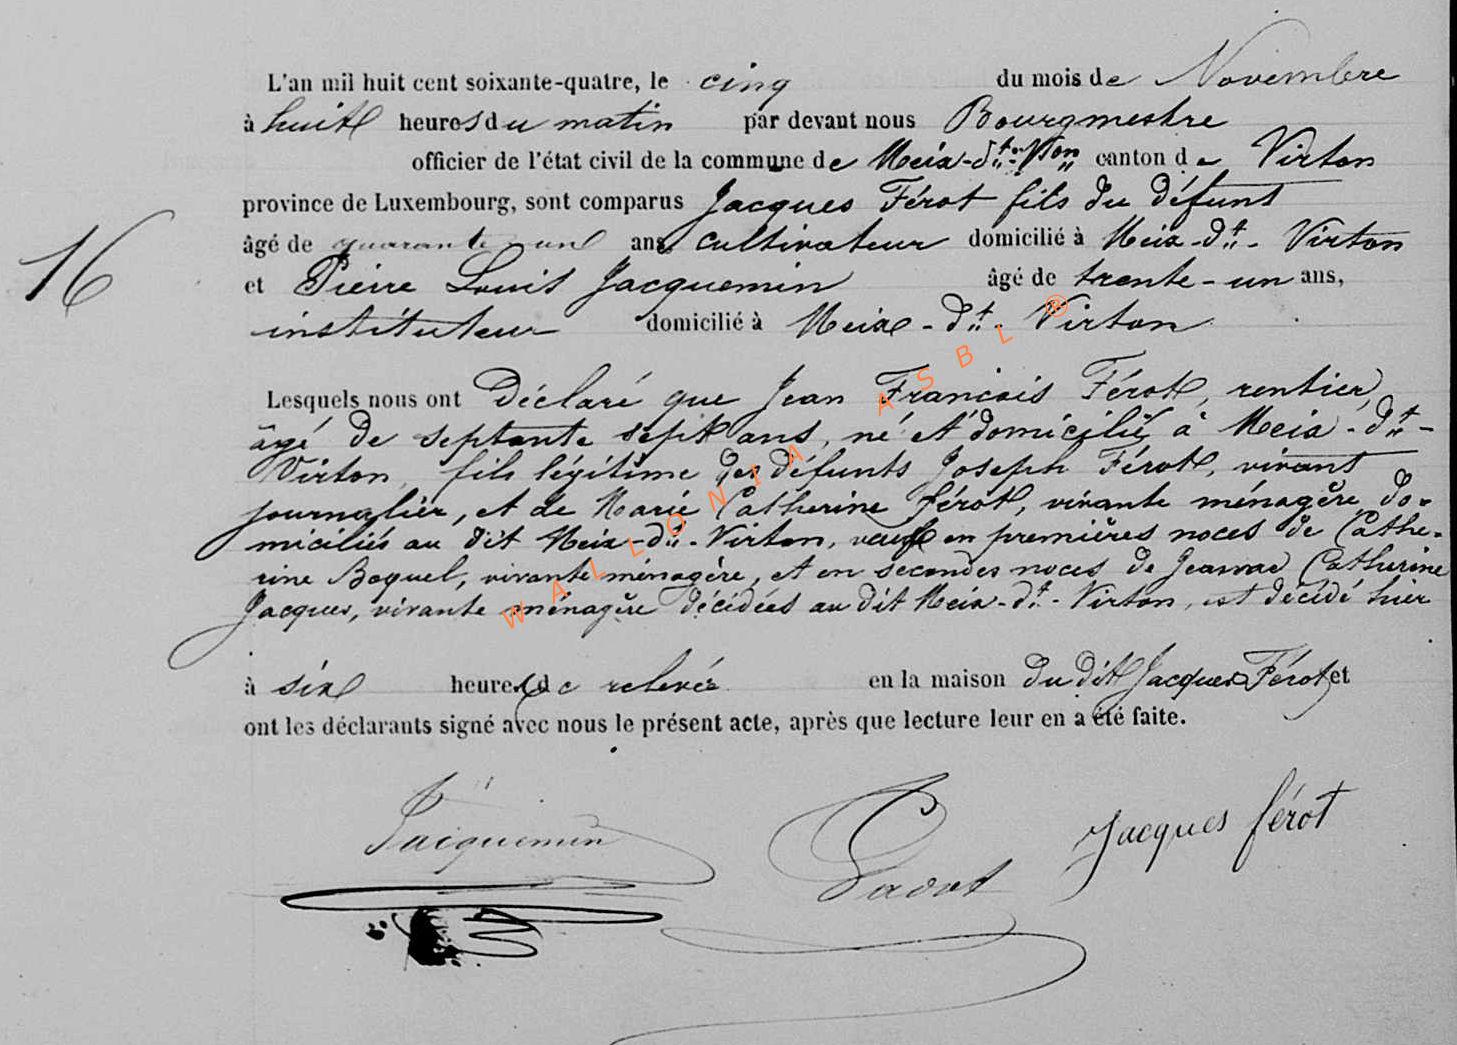 L'an mil huit cent soixante-quatre, le cinq du mois de Novembre
à huit heures du matin par devant nous Bourgmestre
officier de l'état civil de la commune de Meix-dt-Vton canton de Virton
province de Luxembourg, sont comparus Jacques Férot fils du défunt
âgé de quarante un ans cultivateur domicilié à Meix-dt- Virton
16
et Pierre Louis Jacquemin âgé de trente-un ans,
instituteur domicilié à Meix-dt- Virton
Lesquels nous ont Déclaré que Jean Francois Férot, rentier,
âgé de septante sept ans, né et domicilié à Meix-dt-
Virton, fils légitime des défunts Joseph Férot, vivant
journalier, et de Marie Catherine Férot, vivante ménagère do-
miciliés au dit Meix-dt-Virton, veuf en premières noces de Cathe-
rine Boquel, vivante ménagère, et en secondes noces de Jeanne Catherine
Jacques, vivante ménagère décédées au dit Meix-dt-Virton, est décédé hier
à six heures de relevée en la maison du dit Jacques Férot et
ont les déclarants signé avec nous le présent acte, après que lecture leur en a été faite.
Jacquemin
Jacques férot
WALLONIA ASBL ®